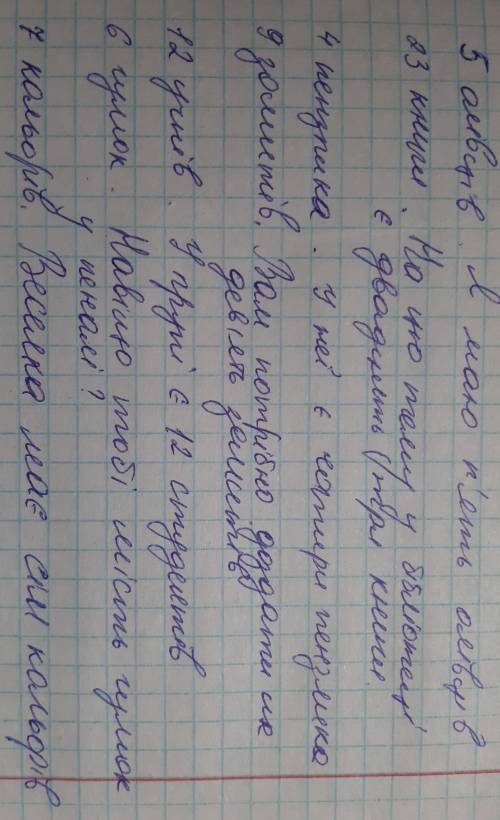 5 олівців. Я маю п'ять олівців
23 книги. На цю тему у бібліотеці
є двадцять три книги.
4 пензлика. У неї є чотири пензлика
9 зошитів. Вам потрібно додати ще
дев'ять зошитів
12 учнів. У групі є 12 студентів
6 гумок. Навіщо тобі шість гумок
у пеналі?
7 кольорів. Веселка має сім кольорів